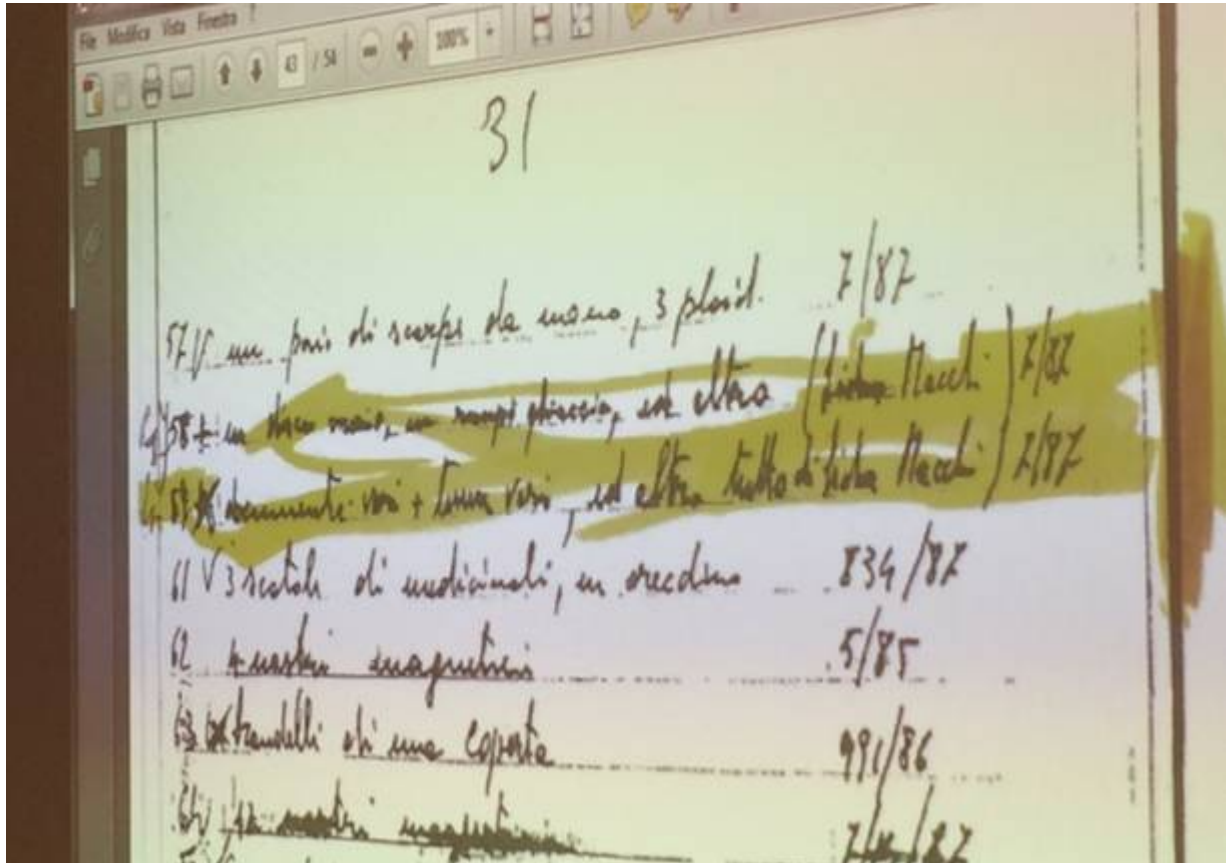 File Modifica Vista Finestra ?
43 / 54 100%
31
57 V un paio di scarpe da uomo, 3 plaid. 7/87
58 un ed altro (Lidia Macchi) 7/87
documenti vari + ed altro tutto di Lidia Macchi) 7/87
61 V 3 scatole di medicinali, un orecchino 834/87
62 4 nastri magnetici 5/85
63 brandelli di una coperta 991/86
64 V nastri magnetici